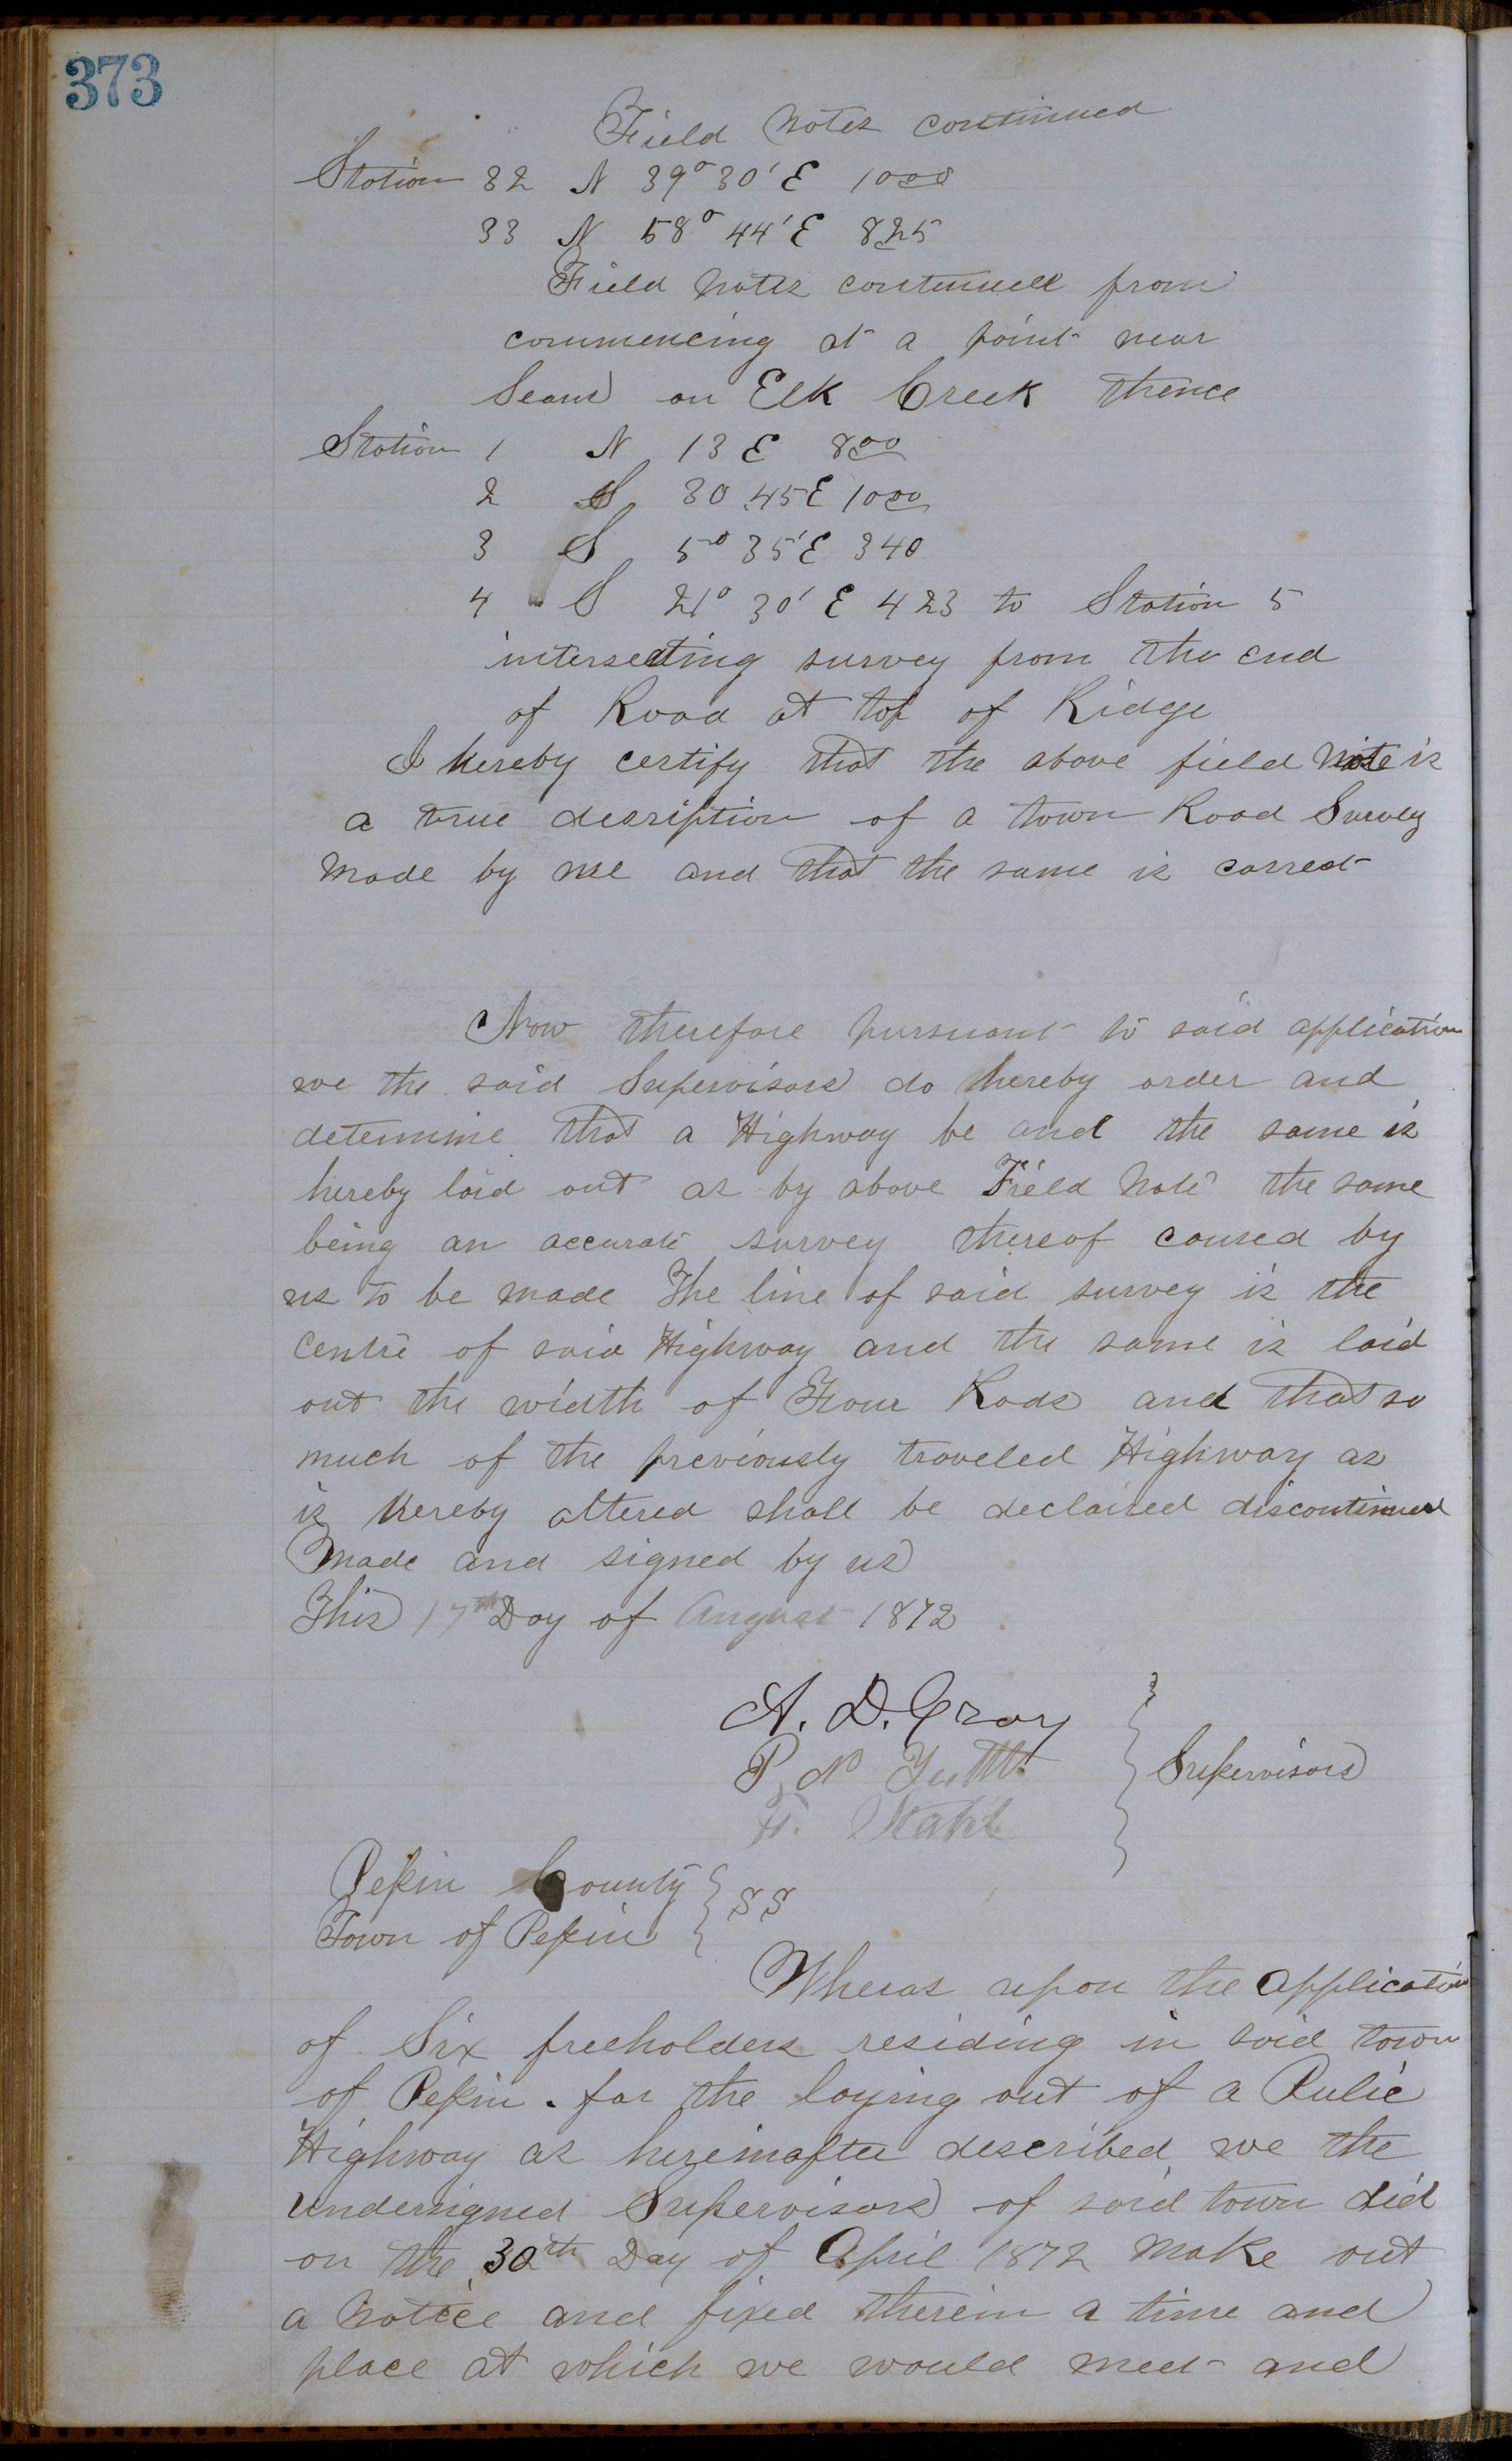 373
Field Notes continued
Station 32 N 39° 30' E 1000
33 N 58° 44' E 825
Field Notes continuell from
commencing at a point near
on Elk Creek thence
Station 1 N 13 E 800
2 S 30 45 E 1000
3 S 5° 35' E 340
4 S 21° 30' E 423 to Station 5
intersecting survey from the end
of Road at top of Ridge
I hereby certify that the above field Note is
a true desription of a town Road Survey
Made by me and that the same is correct
Now therefore pursuant to said application
we the said Supervisors do hereby order and
determine that a Highway be and the same is
hereby laid out as by above Field Note the same
being an accurate survey thereof caused by
us to be made The line of said survey is the
Centre of said Highway and the same is laid
out the width of Four Rods and that so
much of the previously traveled Highway as
is hereby altered shall be declaired discontinued
Made and signed by us
This 17th Day of August 1872
A. D. Gray
P. N. Tuttle
Supervisors
Stahl
Pepin County
SS
Town of Pepin
Wheras upon the application
of Six freeholders residing in said town
of Pepin. for the laying out of a Pulic
Highway as hereinafter described we the
undersigned Supervisors of said town did
on the 30th Day of April 1872 Make out
a Notice and fixed therein a time and
place at which we would meet and